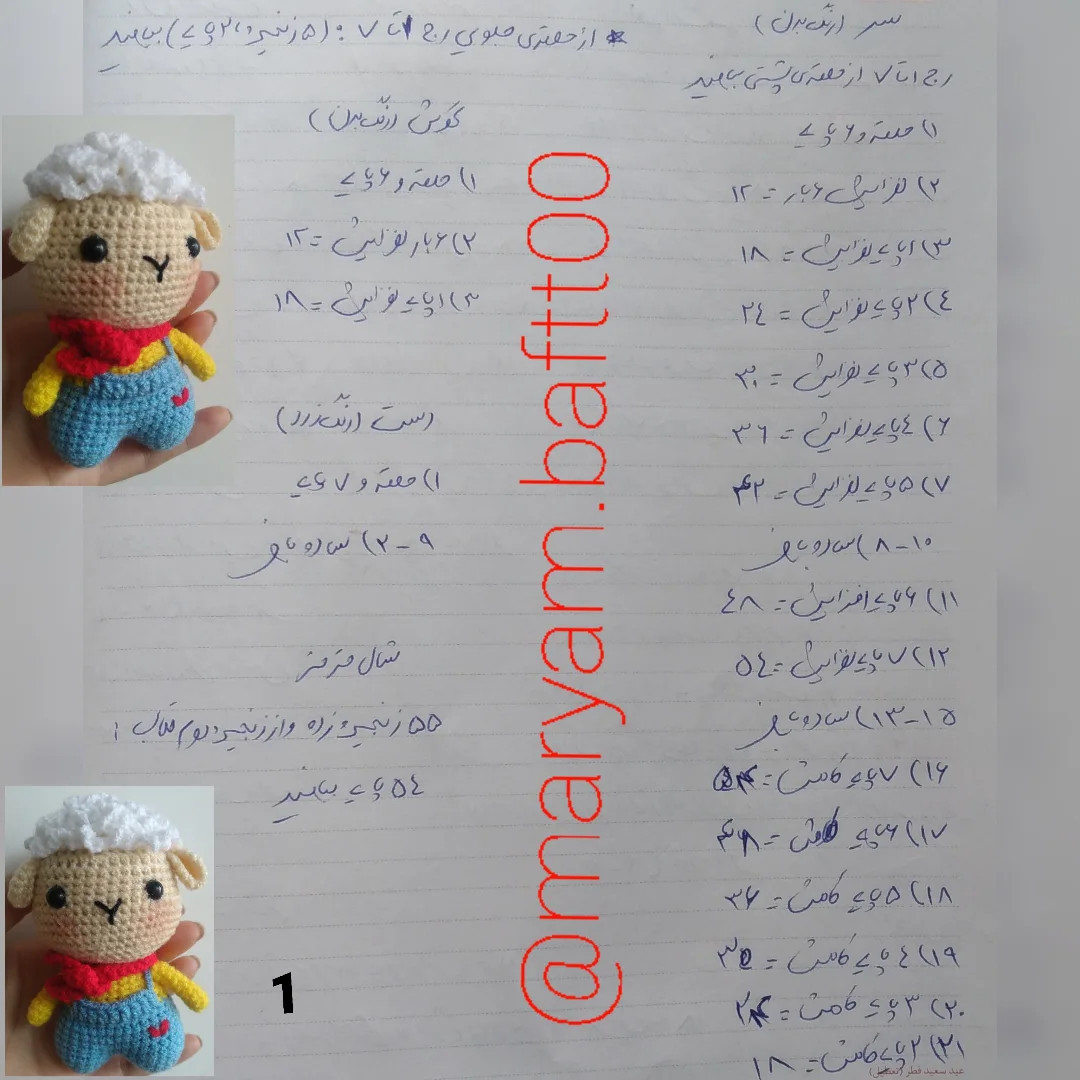 سر (رنگ بدن)
رج ۱ تا ۷ از حلقه‌ی پشتی ببافید
۱) حلقه و ۶ پایه
۲) افزایش ۶ بار = ۱۲
۳) ۱ پایه افزایش = ۱۸
۴) ۲ پایه افزایش = ۲۴
۵) ۳ پایه افزایش = ۳۰
۶) ۴ پایه افزایش = ۳۶
۷) ۵ پایه افزایش = ۴۲
۸-۱۰) ساده بافی
۱۱) ۶ پایه افزایش = ۴۸
۱۲) ۷ پایه افزایش = ۵۴
۱۳-۱۵) ساده بافی
۱۶) ۷ پایه کاهش =
۱۷) ۶ پایه کاهش =
۱۸) ۵ پایه کاهش = ۳۶
۱۹) ۴ پایه کاهش = ۳۰
۲۰) ۳ پایه کاهش = ۲۴
۲۱) ۲ پایه کاهش = ۱۸
عید سعید فطر (تعطیل)
* از حلقه‌ی جلوی رج ۱ تا ۷ : (۵ زنجیره، ۲ پایه) ببافید
گوش (رنگ بدن)
۱) حلقه و ۶ پایه
۲) ۶ بار افزایش = ۱۲
۳) ۱ پایه افزایش = ۱۸
دست (رنگ زرد)
۱) حلقه و ۷ پایه
۲-۹) ساده بافی
شال قرمز
۵۵ زنجیره زده و از زنجیره دوم قلاب :
۵۴ پایه ببافید
@maryam.baftt00
1